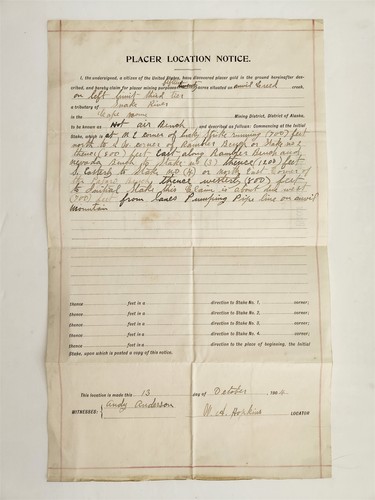 PLACER LOCATION NOTICE.
I, the undersigned, a citizen of the United States, have discovered placer gold in the ground hereinafter des-
cribed, and hereby claim for placer mining purposes acres situated on Anvil Creek creek,
on left limit third tier
a tributary of Snake River
in the Cape Nome Mining District, District of Alaska.
to be known as Hot Air Bench and described as follows: Commencing at the initial
Stake, which is at N.E. corner of Lucky Strike running (700) feet
north to S.E. corner of Rambler Bench or Stake no 2
thence (800) feet East along Rambler Bench and
Nevada Bench to Stake no (3) thence (1200) feet
S. Easterly to Stake no (4) or North East Corner of
thence westerly (800) feet
to Initial Stake this Claim is about due west
(700) feet from Lanes Pumping Pipe line on Anvil
Mountain
thence feet in a direction to Stake No. 1. corner;
thence feet in a direction to Stake No. 2. corner;
thence feet in a direction to Stake No. 3. corner;
thence feet in a direction to Stake No. 4. corner;
thence feet in a direction to the place of beginning, the Initial
Stake, upon which is posted a copy of this notice.
This location is made this 13 day of October 190
WITNESSES: Andy Anderson W. A. Hopkins LOCATOR